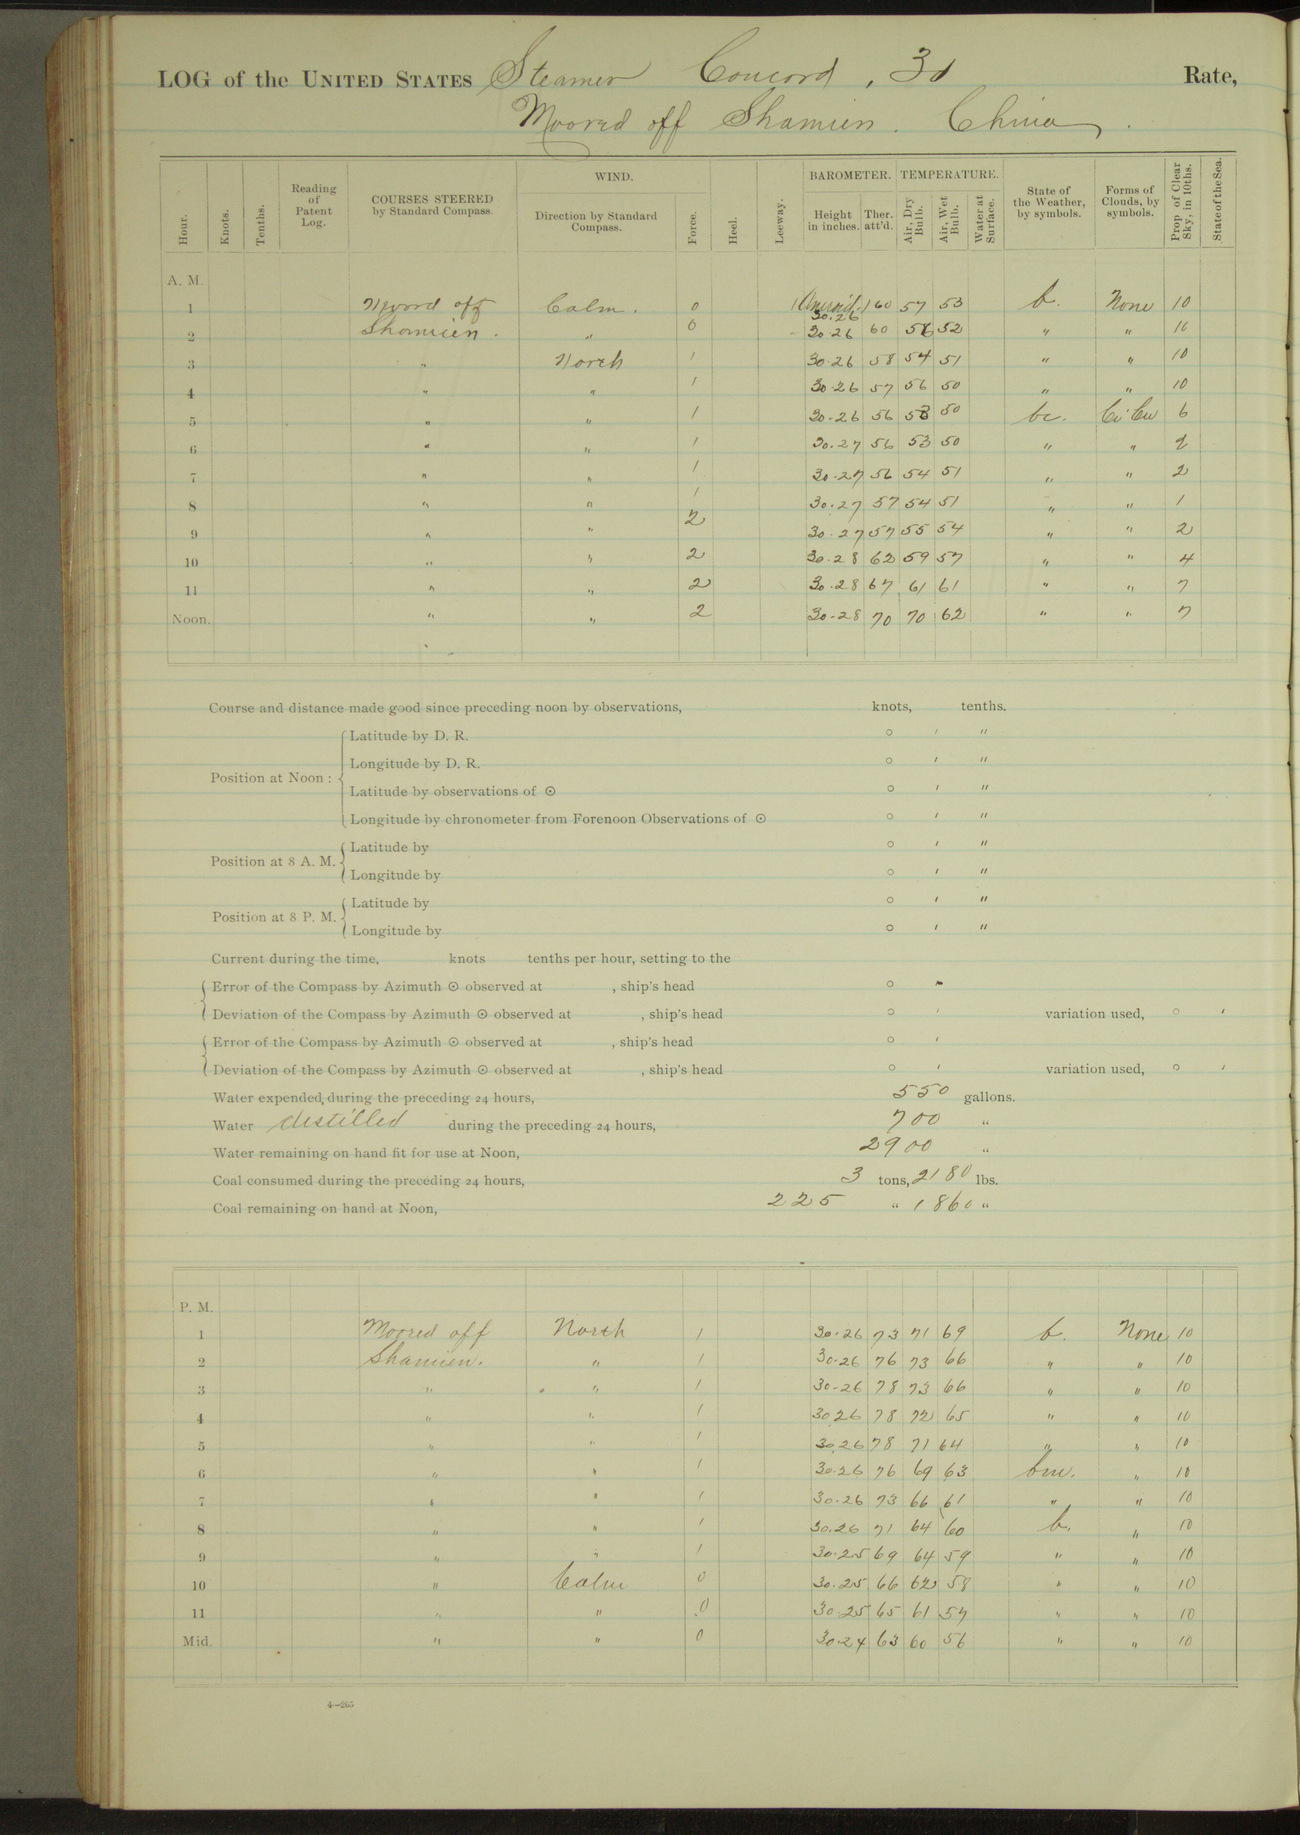 LOG of the UNITED STATES Steamer Concord, 3d Rate,
Moored off Shamien. China.
Hour. Knots. Tenths. Reading of Patent Log. COURSES STEERED by Standard Compass. WIND. Direction by Standard Compass. Force. Heel. Leeway. BAROMETER. Height in inches. Ther. att'd. TEMPERATURE. Air, Dry Bulb. Air, Wet Bulb. Water at Surface. State of the Weather, by symbols. Forms of Clouds, by symbols. Prop. of Clear Sky, in 10ths. State of the Sea.
A. M.
1 Moord off Calm. 0 (Aneroid.) 30.26 60 57 53 b. None 10
2 Shamien. " 0 30.26 60 56 52 " " 10
3 " North 1 30.26 58 54 51 " " 10
4 " " 1 30.26 57 56 50 " " 10
5 " " 1 30.26 56 53 50 bc. Ci Cu 6
6 " " 1 30.27 56 53 50 " " 2
7 " " 1 30.27 56 54 51 " " 2
8 " " 1 30.27 57 54 51 " " 1
9 " " 2 30.27 57 55 54 " " 2
10 " " 2 30.28 62 59 57 " " 4
11 " " 2 30.28 67 61 61 " " 7
Noon. " " 2 30.28 70 70 62 " " 7
Course and distance made good since preceding noon by observations, knots, tenths.
Position at Noon: Latitude by D. R. ° ' "
Longitude by D. R. ° ' "
Latitude by observations of ⊙ ° ' "
Longitude by chronometer from Forenoon Observations of ⊙ ° ' "
Position at 8 A. M. Latitude by ° ' "
Longitude by ° ' "
Position at 8 P. M. Latitude by ° ' "
Longitude by ° ' "
Current during the time, knots tenths per hour, setting to the
Error of the Compass by Azimuth ⊙ observed at , ship's head ° '
Deviation of the Compass by Azimuth ⊙ observed at , ship's head ° ' variation used, ° '
Error of the Compass by Azimuth ⊙ observed at , ship's head ° '
Deviation of the Compass by Azimuth ⊙ observed at , ship's head ° ' variation used, ° '
Water expended during the preceding 24 hours, 550 gallons.
Water destilled during the preceding 24 hours, 700 "
Water remaining on hand fit for use at Noon, 2900 "
Coal consumed during the preceding 24 hours, 3 tons, 2180 lbs.
Coal remaining on hand at Noon, 225 " 1860 "
P. M.
1 Moored off North 1 30.26 73 71 69 b. None 10
2 Shamien. " 1 30.26 76 73 66 " " 10
3 " " 1 30.26 78 73 66 " " 10
4 " " 1 30.26 78 72 65 " " 10
5 " " 1 30.26 78 71 64 " " 10
6 " " 1 30.26 76 69 63 bm. " 10
7 " " 1 30.26 73 66 61 " " 10
8 " " 1 30.26 71 64 60 b. " 10
9 " " 1 30.25 69 64 59 " " 10
10 " Calm 0 30.25 66 62 58 " " 10
11 " " 0 30.25 65 61 57 " " 10
Mid. " " 0 30.24 63 60 56 " " 10
4—265